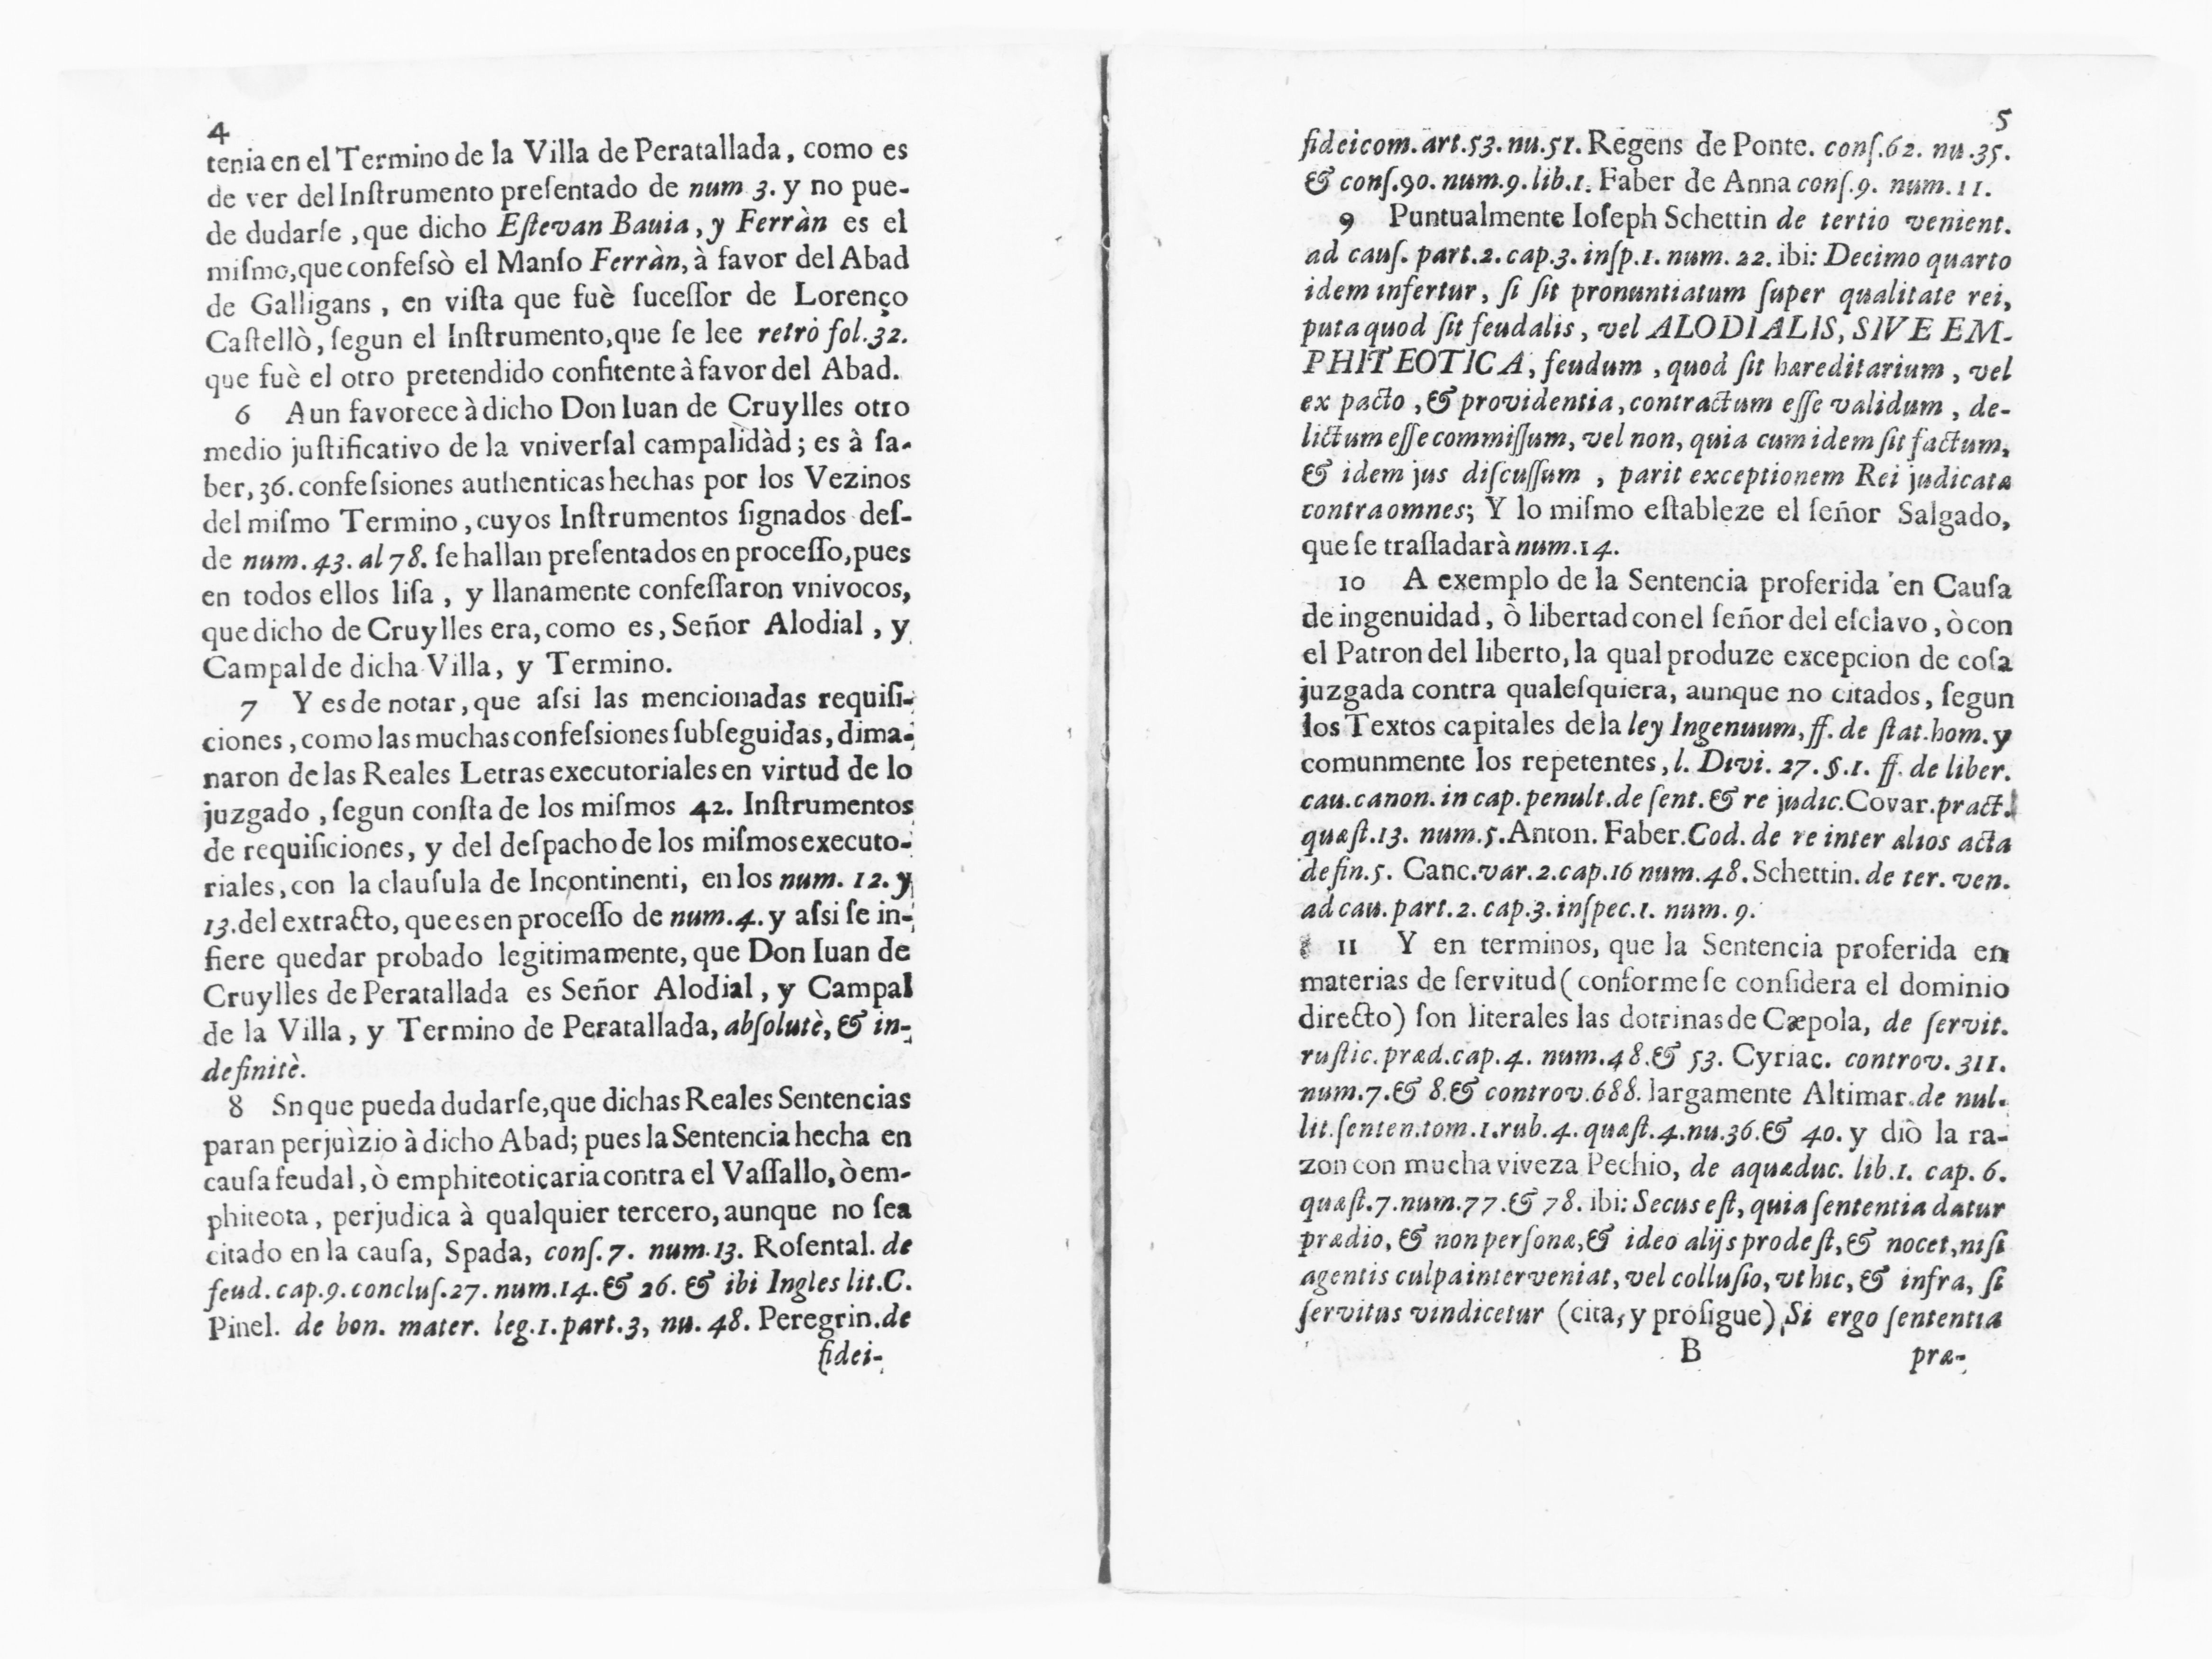 4
tenia en el Termino de la Villa de Peratallada, como es
de ver del Inſtrumento preſentado de num 3. y no pue-
de dudarſe, que dicho Eſtevan Bauia, y Ferràn es el
miſmo, que confeſsò el Manſo Ferràn, à favor del Abad
de Galligans, en viſta que fuè ſuceſſor de Lorenço
Caſtellò, ſegun el Inſtrumento, que ſe lee retrò fol.32.
que fuè el otro pretendido confitente à favor del Abad.
6 Aun favorece à dicho Don Iuan de Cruylles otro
medio juſtificativo de la vniverſal campalidàd; es à ſa-
ber, 36. confeſsiones authenticas hechas por los Vezinos
del miſmo Termino, cuyos Inſtrumentos ſignados deſ-
de num. 43. al 78. ſe hallan preſentados en proceſſo, pues
en todos ellos liſa, y llanamente confeſſaron vnivocos,
que dicho de Cruylles era, como es, Señor Alodial, y
Campal de dicha Villa, y Termino.
7 Y es de notar, que aſsi las mencionadas requiſi-
ciones, como las muchas confeſsiones ſubſeguidas, dima-
naron de las Reales Letras executoriales en virtud de lo
juzgado, ſegun conſta de los miſmos 42. Inſtrumentos
de requiſiciones, y del deſpacho de los miſmos executo-
riales, con la clauſula de Incontinenti, en los num. 12. y
13. del extracto, que es en proceſſo de num.4. y aſsi ſe in-
fiere quedar probado legitimamente, que Don Iuan de
Cruylles de Peratallada es Señor Alodial, y Campal
de la Villa, y Termino de Peratallada, abſolutè, & in-
definitè.
8 Sn que pueda dudarſe, que dichas Reales Sentencias
paran perjuìzio à dicho Abad; pues la Sentencia hecha en
cauſa feudal, ò emphiteoticaria contra el Vaſſallo, ò em-
phiteota, perjudica à qualquier tercero, aunque no ſea
citado en la cauſa, Spada, conſ. 7. num.13. Roſental. de
feud. cap.9. concluſ.27. num.14. & 26. & ibi Ingles lit.C.
Pinel. de bon. mater. leg.1.part.3, nu. 48. Peregrin.de
fidei-
5
fideicom. art.53. nu.51. Regens de Ponte. conſ.62. nu.35.
& conſ.90. num.9. lib.1. Faber de Anna conſ.9. num.11.
9 Puntualmente Ioſeph Schettin de tertio venient.
ad cauſ. part.2. cap.3. inſp.1. num. 22. ibi: Decimo quarto
idem infertur, ſi ſit pronuntiatum ſuper qualitate rei,
puta quod ſit feudalis, vel ALODIALIS, SIVE EM-
PHITEOTICA, feudum, quod ſit hæreditarium, vel
ex pacto, & providentia, contractum eſſe validum, de-
lictum eſſe commiſſum, vel non, quia cum idem ſit factum,
& idem jus diſcuſſum, parit exceptionem Rei judicatæ
contra omnes; Y lo miſmo eſtableze el ſeñor Salgado,
que ſe traſladarà num.14.
10 A exemplo de la Sentencia proferida en Cauſa
de ingenuidad, ò libertad con el ſeñor del eſclavo, ò con
el Patron del liberto, la qual produze excepcion de coſa
juzgada contra qualeſquiera, aunque no citados, ſegun
los Textos capitales de la ley Ingenuum, ff. de ſtat. hom. y
comunmente los repetentes, l. Divi. 27. §.1. ff. de liber.
cau. canon. in cap. penult. de ſent. & re judic. Covar. pract.
quæſt.13. num.5. Anton. Faber. Cod. de re inter alios acta
defin.5. Canc. var. 2. cap.16 num.48. Schettin. de ter. ven.
ad cau. part.2. cap.3. inſpec.1. num. 9.
11 Y en terminos, que la Sentencia proferida en
materias de ſervitud (conforme ſe conſidera el dominio
directo) ſon literales las dotrinas de Cæpola, de ſervit.
ruſtic. præd. cap.4. num.48. & 53. Cyriac. controv. 311.
num.7. & 8. & controv.688. largamente Altimar. de nul-
lit. ſenten. tom.1. rub.4. quæſt.4. nu.36. & 40. y diò la ra-
zon con mucha viveza Pechio, de aquæduc. lib.1. cap. 6.
quæſt.7. num.77. & 78. ibi: Secus eſt, quia ſententia datur
prædio, & non perſonæ, & ideo alijs prodeſt, & nocet, niſi
agentis culpa interveniat, vel colluſio, vt hic, & infra, ſi
ſervitus vindicetur (cita, y proſigue) Si ergo ſententia
B
præ-